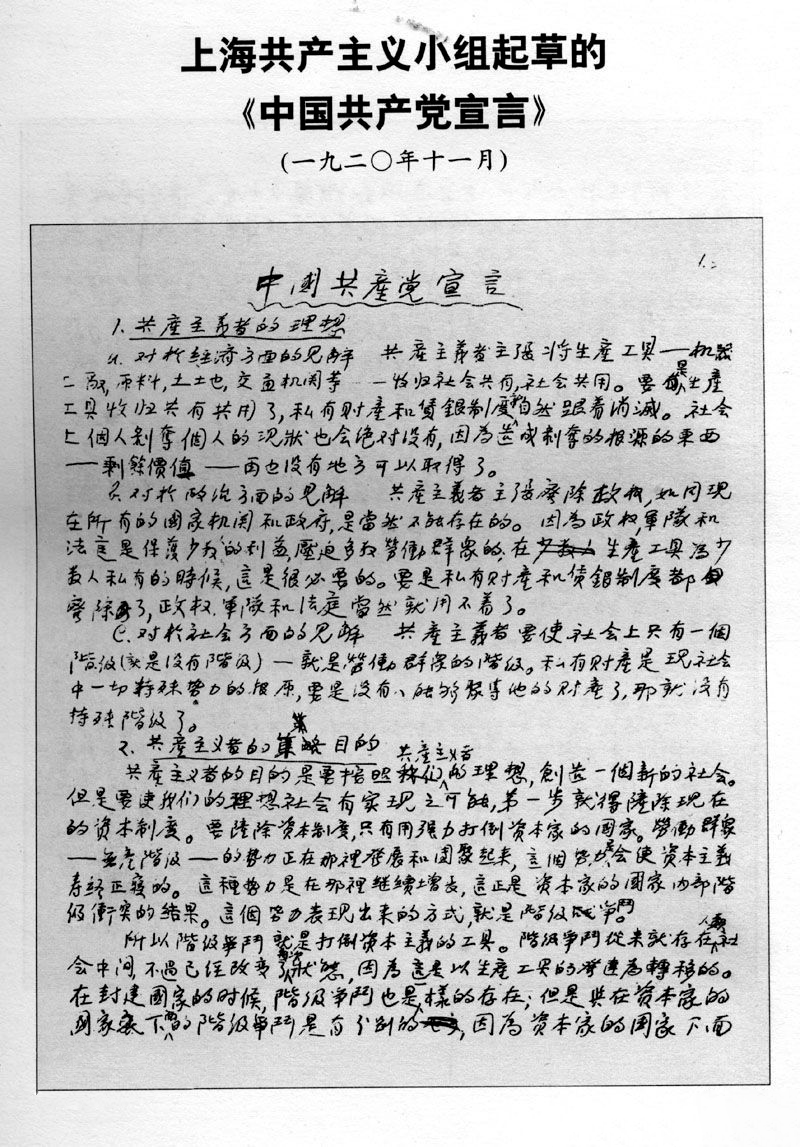 上海共产主义小组起草的
《中国共产党宣言》
(一九二〇年十一月)
1.
中國共產党宣言
1. 共產主義者的理想
a. 对於经濟方面的见解 共產主義者主張将生產工具——机器
工厰,原料,土地,交通机関等——收归社会共有,社会共用。要是生產
工具收归共有共用了,私有财產和賃銀制度就自然跟着消滅。社会
上個人剝奪個人的现狀也会绝对没有,因為造成剝奪的根源的東西
——剩餘價值——再也没有地方可以取得了。
b. 对於政治方面的见解 共產主義者主張廢除政权,如同现
在所有的國家机関和政府,是當然不能存在的。因為政权,軍隊和
法庭是保護少数人的利益,壓迫多数劳働群衆的,在生產工具為少
数人私有的時候,這是很必要的。要是私有财產和賃銀制度都
廢除了,政权、軍隊和法庭當然就用不着了。
C. 对於社会方面的见解 共產主義者要使社会上只有一個
階级(就是没有階级)——就是勞働群衆的階级。私有财產是现社会
中一切特殊势力的根原,要是没有人能够聚集他的财產了,那就没有
特殊階级了。
2. 共產主義者的目的
共產主義者的目的是要按照共產主義者的理想,創造一個新的社会。
但是要使我们的理想社会有实现之可能,第一步就得鏟除现在
的资本制度。要鏟除资本制度,只有用强力打倒资本家的國家。勞働群衆
——無產階级——的势力正在那裡發展和团聚起来,這個势力会使资本主義
寿终正寢的。這種势力是在那裡继续增长,這正是资本家的國家内部階
级衝突的结果。這個势力表现出来的方式,就是階级鬥争。
所以階级爭鬥就是打倒资本主義的工具。階级爭鬥從来就存在人類社
会中间,不過已经改变了狀態,因為這是以生產工具的發達為轉移的。
在封建國家的时候,階级爭鬥也是一樣的存在;但是與在资本家的
國家裏下面的階级爭鬥是有分别的,因為资本家的國家下面